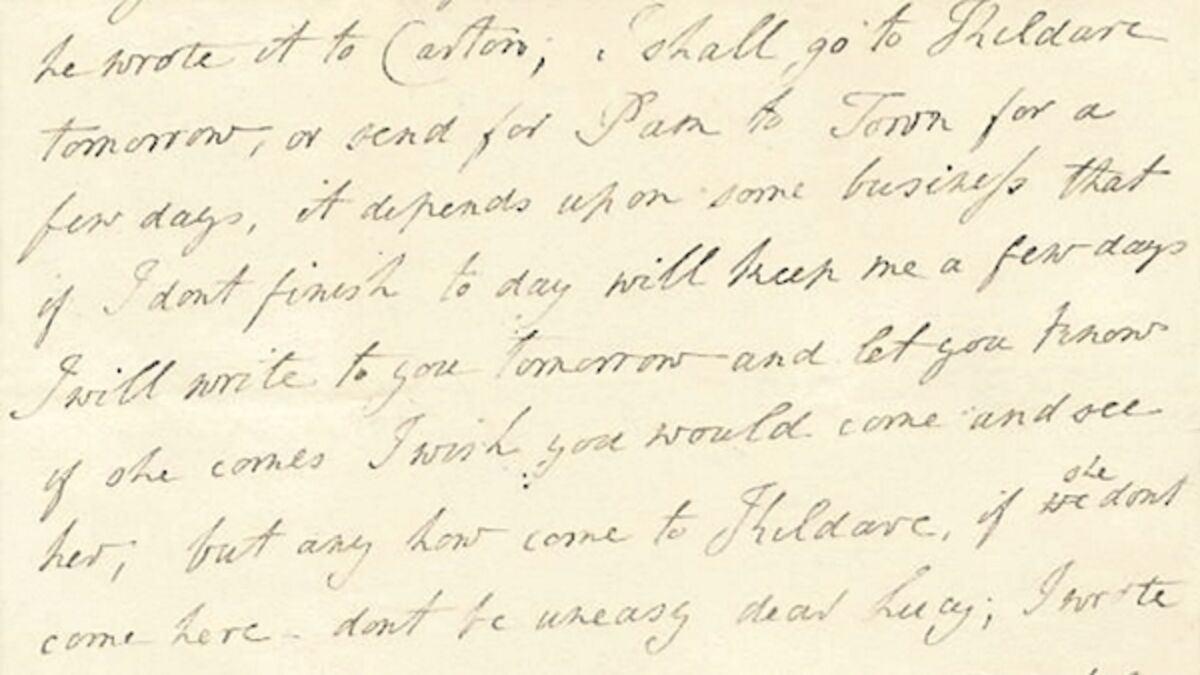 he wrote it to Carton; i shall go to Kildare
tomorrow, or send for Pam to Town for a
few days, it depends upon some business that
if I dont finish to day will keep me a few days
I will write to you tomorrow and let you know
if she comes I wish you would come and see
her; but any how come to Kildare, if we she dont
come here - dont be uneasy dear Lucy; I wrote